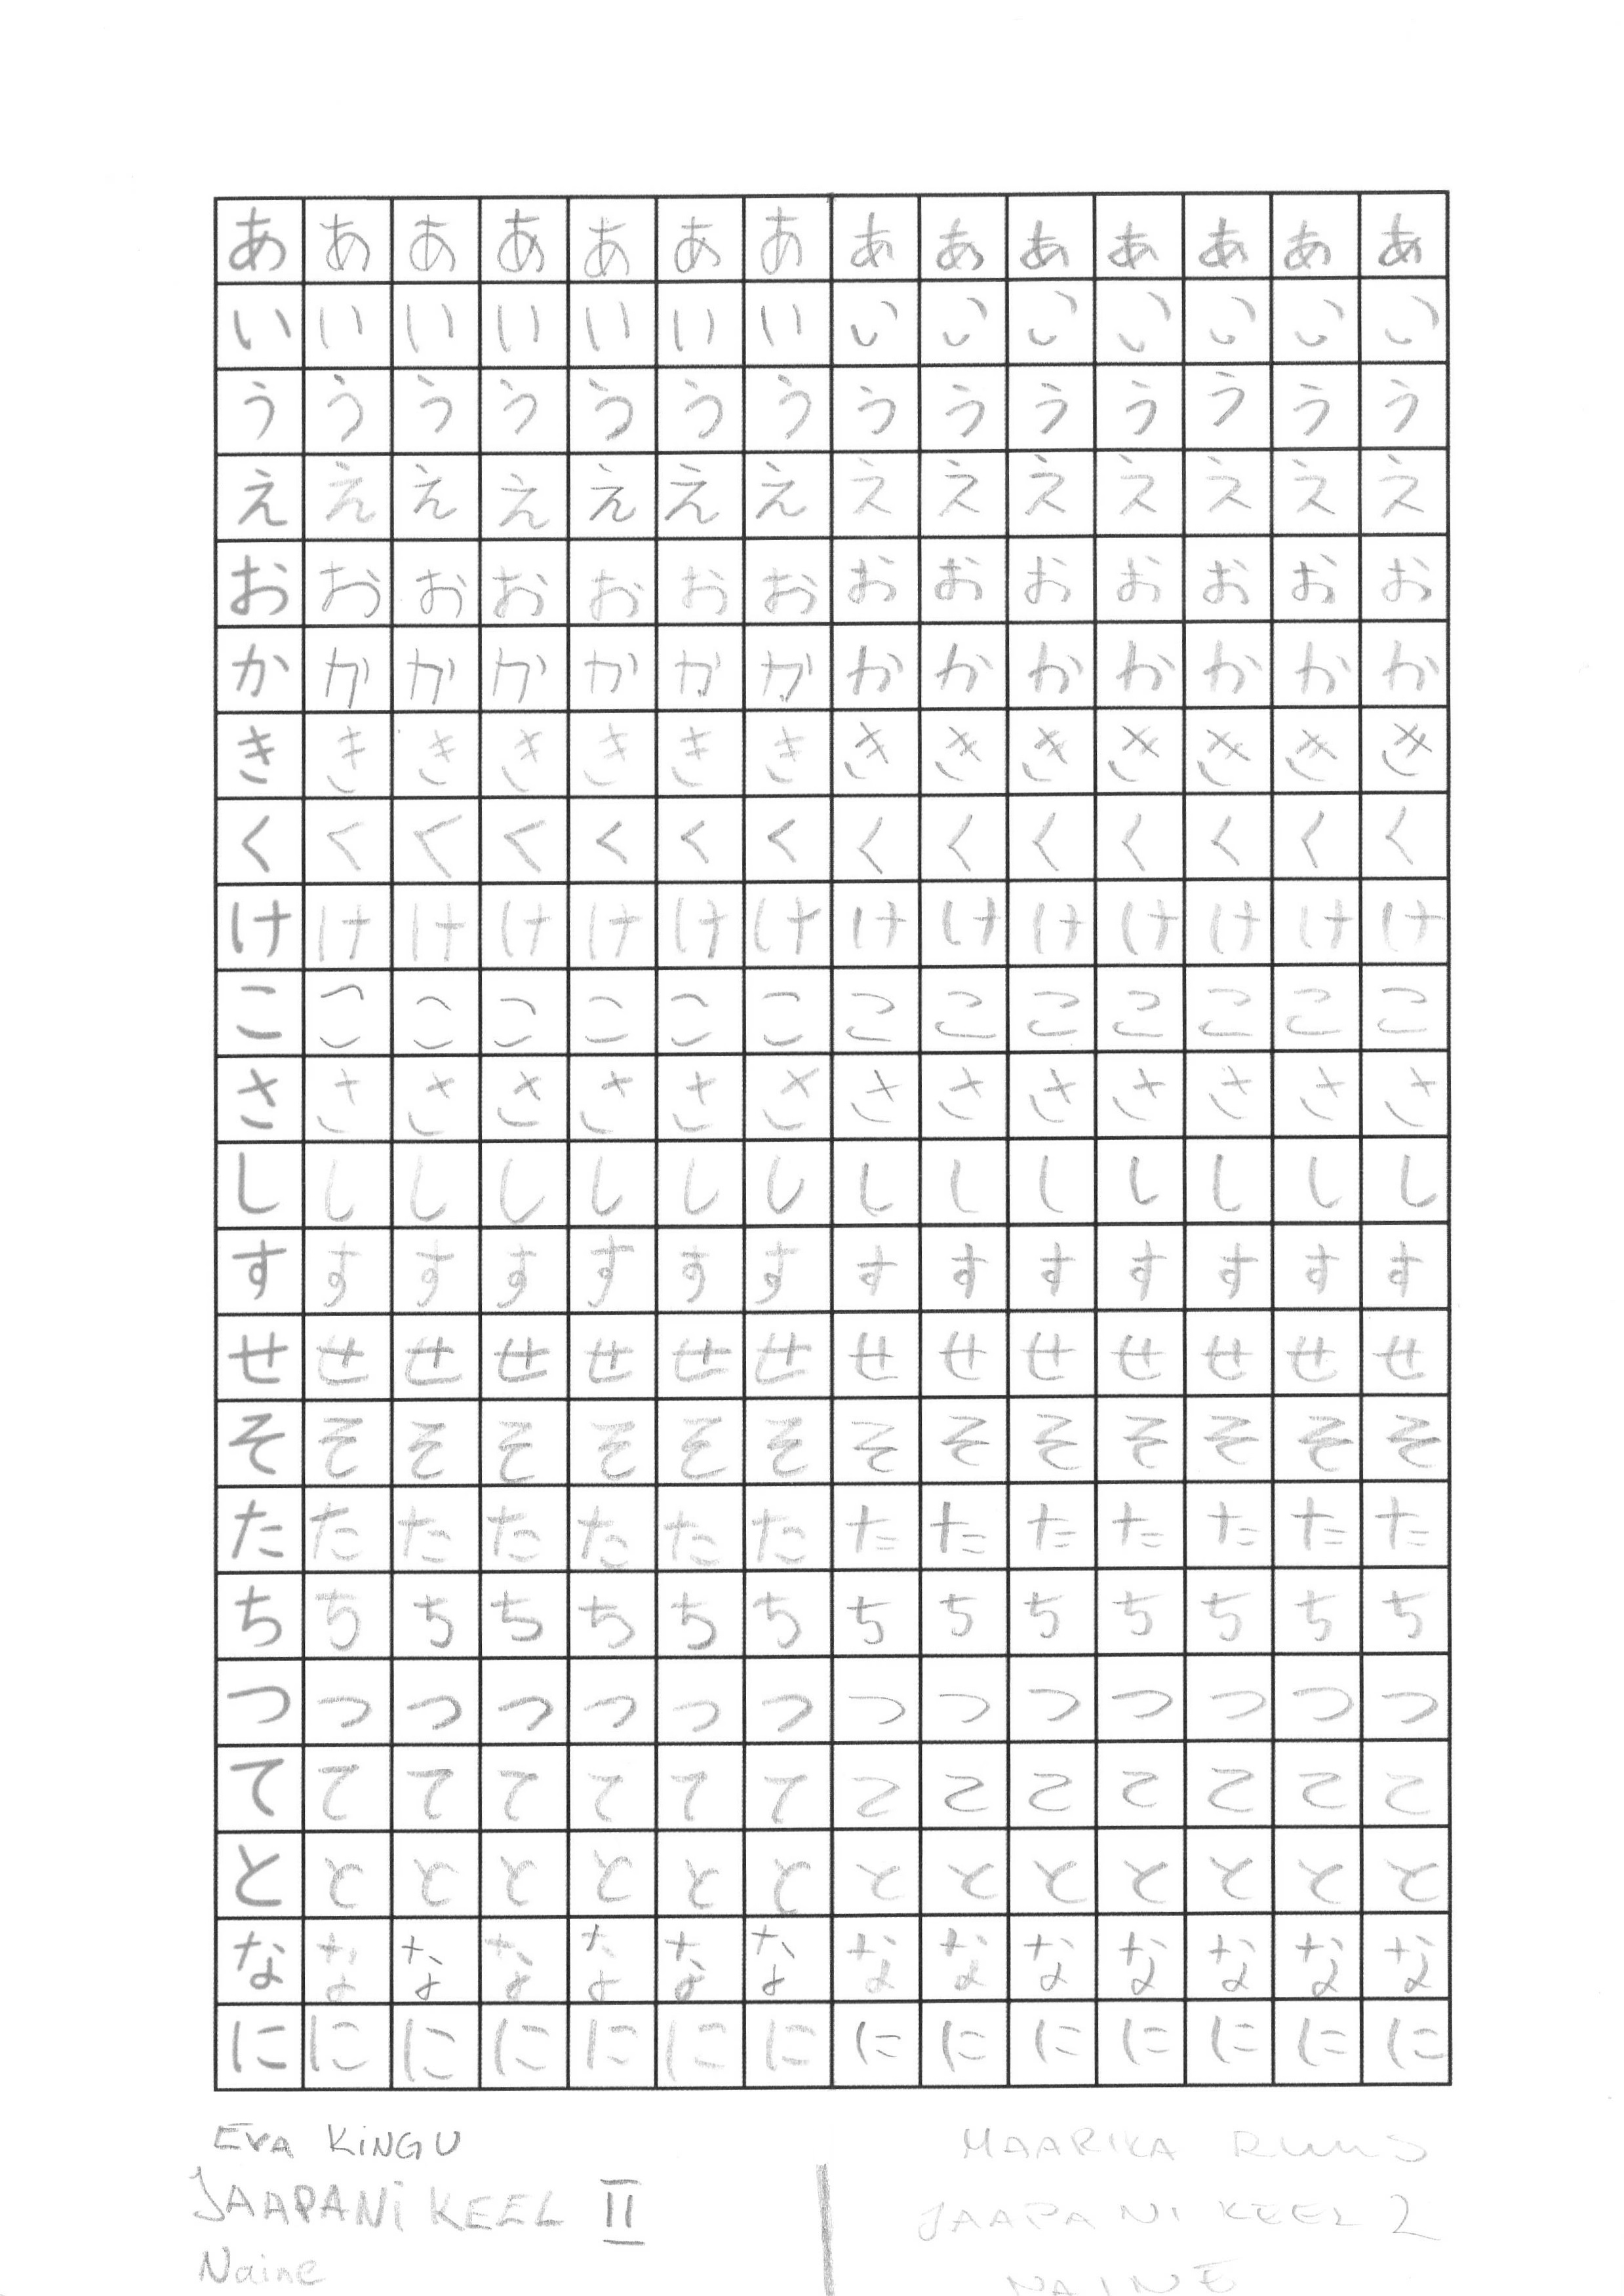 あ あ あ あ あ あ あ あ あ あ あ あ あ あ
い い い い い い い い い い い い い い
う う う う う う う う う う う う う う
え え え え え え え え え え え え え え
お お お お お お お お お お お お お お
か か か か か か か か か か か か か か
き き き き き き き き き き き き き き
く く く く く く く く く く く く く く
け け け け け け け け け け け け け け
こ こ こ こ こ こ こ こ こ こ こ こ こ こ
さ さ さ さ さ さ さ さ さ さ さ さ さ さ
し し し し し し し し し し し し し し
す す す す す す す す す す す す す す
せ せ せ せ せ せ せ せ せ せ せ せ せ せ
そ そ そ そ そ そ そ そ そ そ そ そ そ そ
た た た た た た た た た た た た た た
ち ち ち ち ち ち ち ち ち ち ち ち ち ち
つ つ つ つ つ つ つ つ つ つ つ つ つ つ
て て て て て て て て て て て て て て
と と と と と と と と と と と と と と
な な な な な な な な な な な な な な
に に に に に に に に に に に に に に
EVA KiNGU
JAAPANi KEEL II
Naine
MAARIKA RUUS
JAAPANI KEEL 2
NAINE